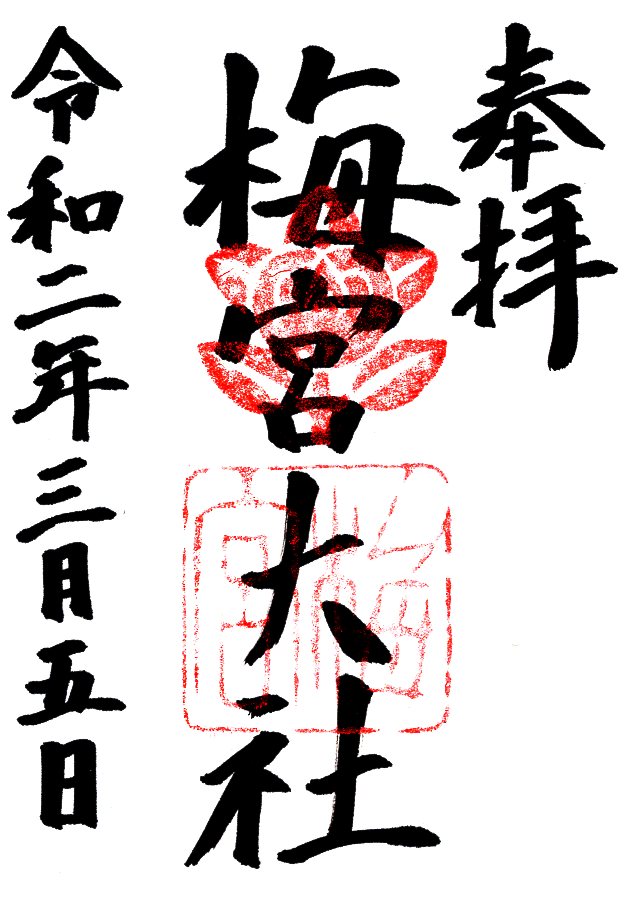 奉拝
梅宮大社
令和二年三月五日
梅宮